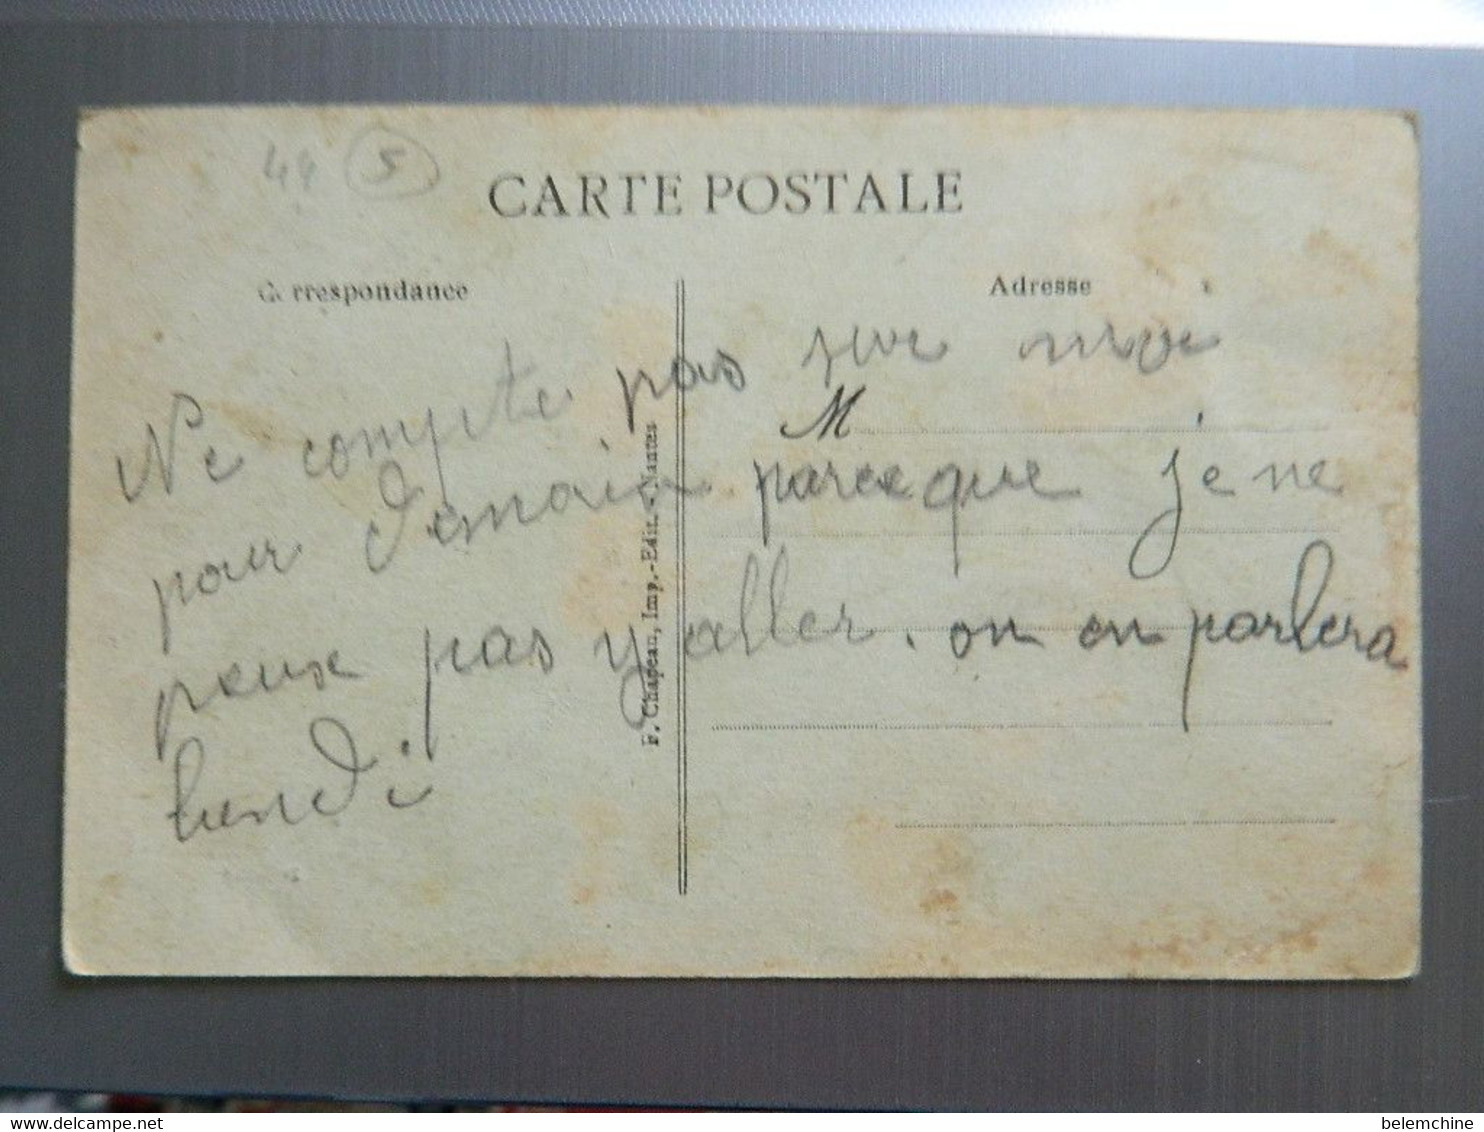 44 5
CARTE POSTALE
Correspondance
Adresse
Ne compte pas sur moi
M
pour demain parceque je ne
peux pas y aller. on en parlera
lundi
F. Chapeau, Imp.-Edit. - Nantes
belemchine